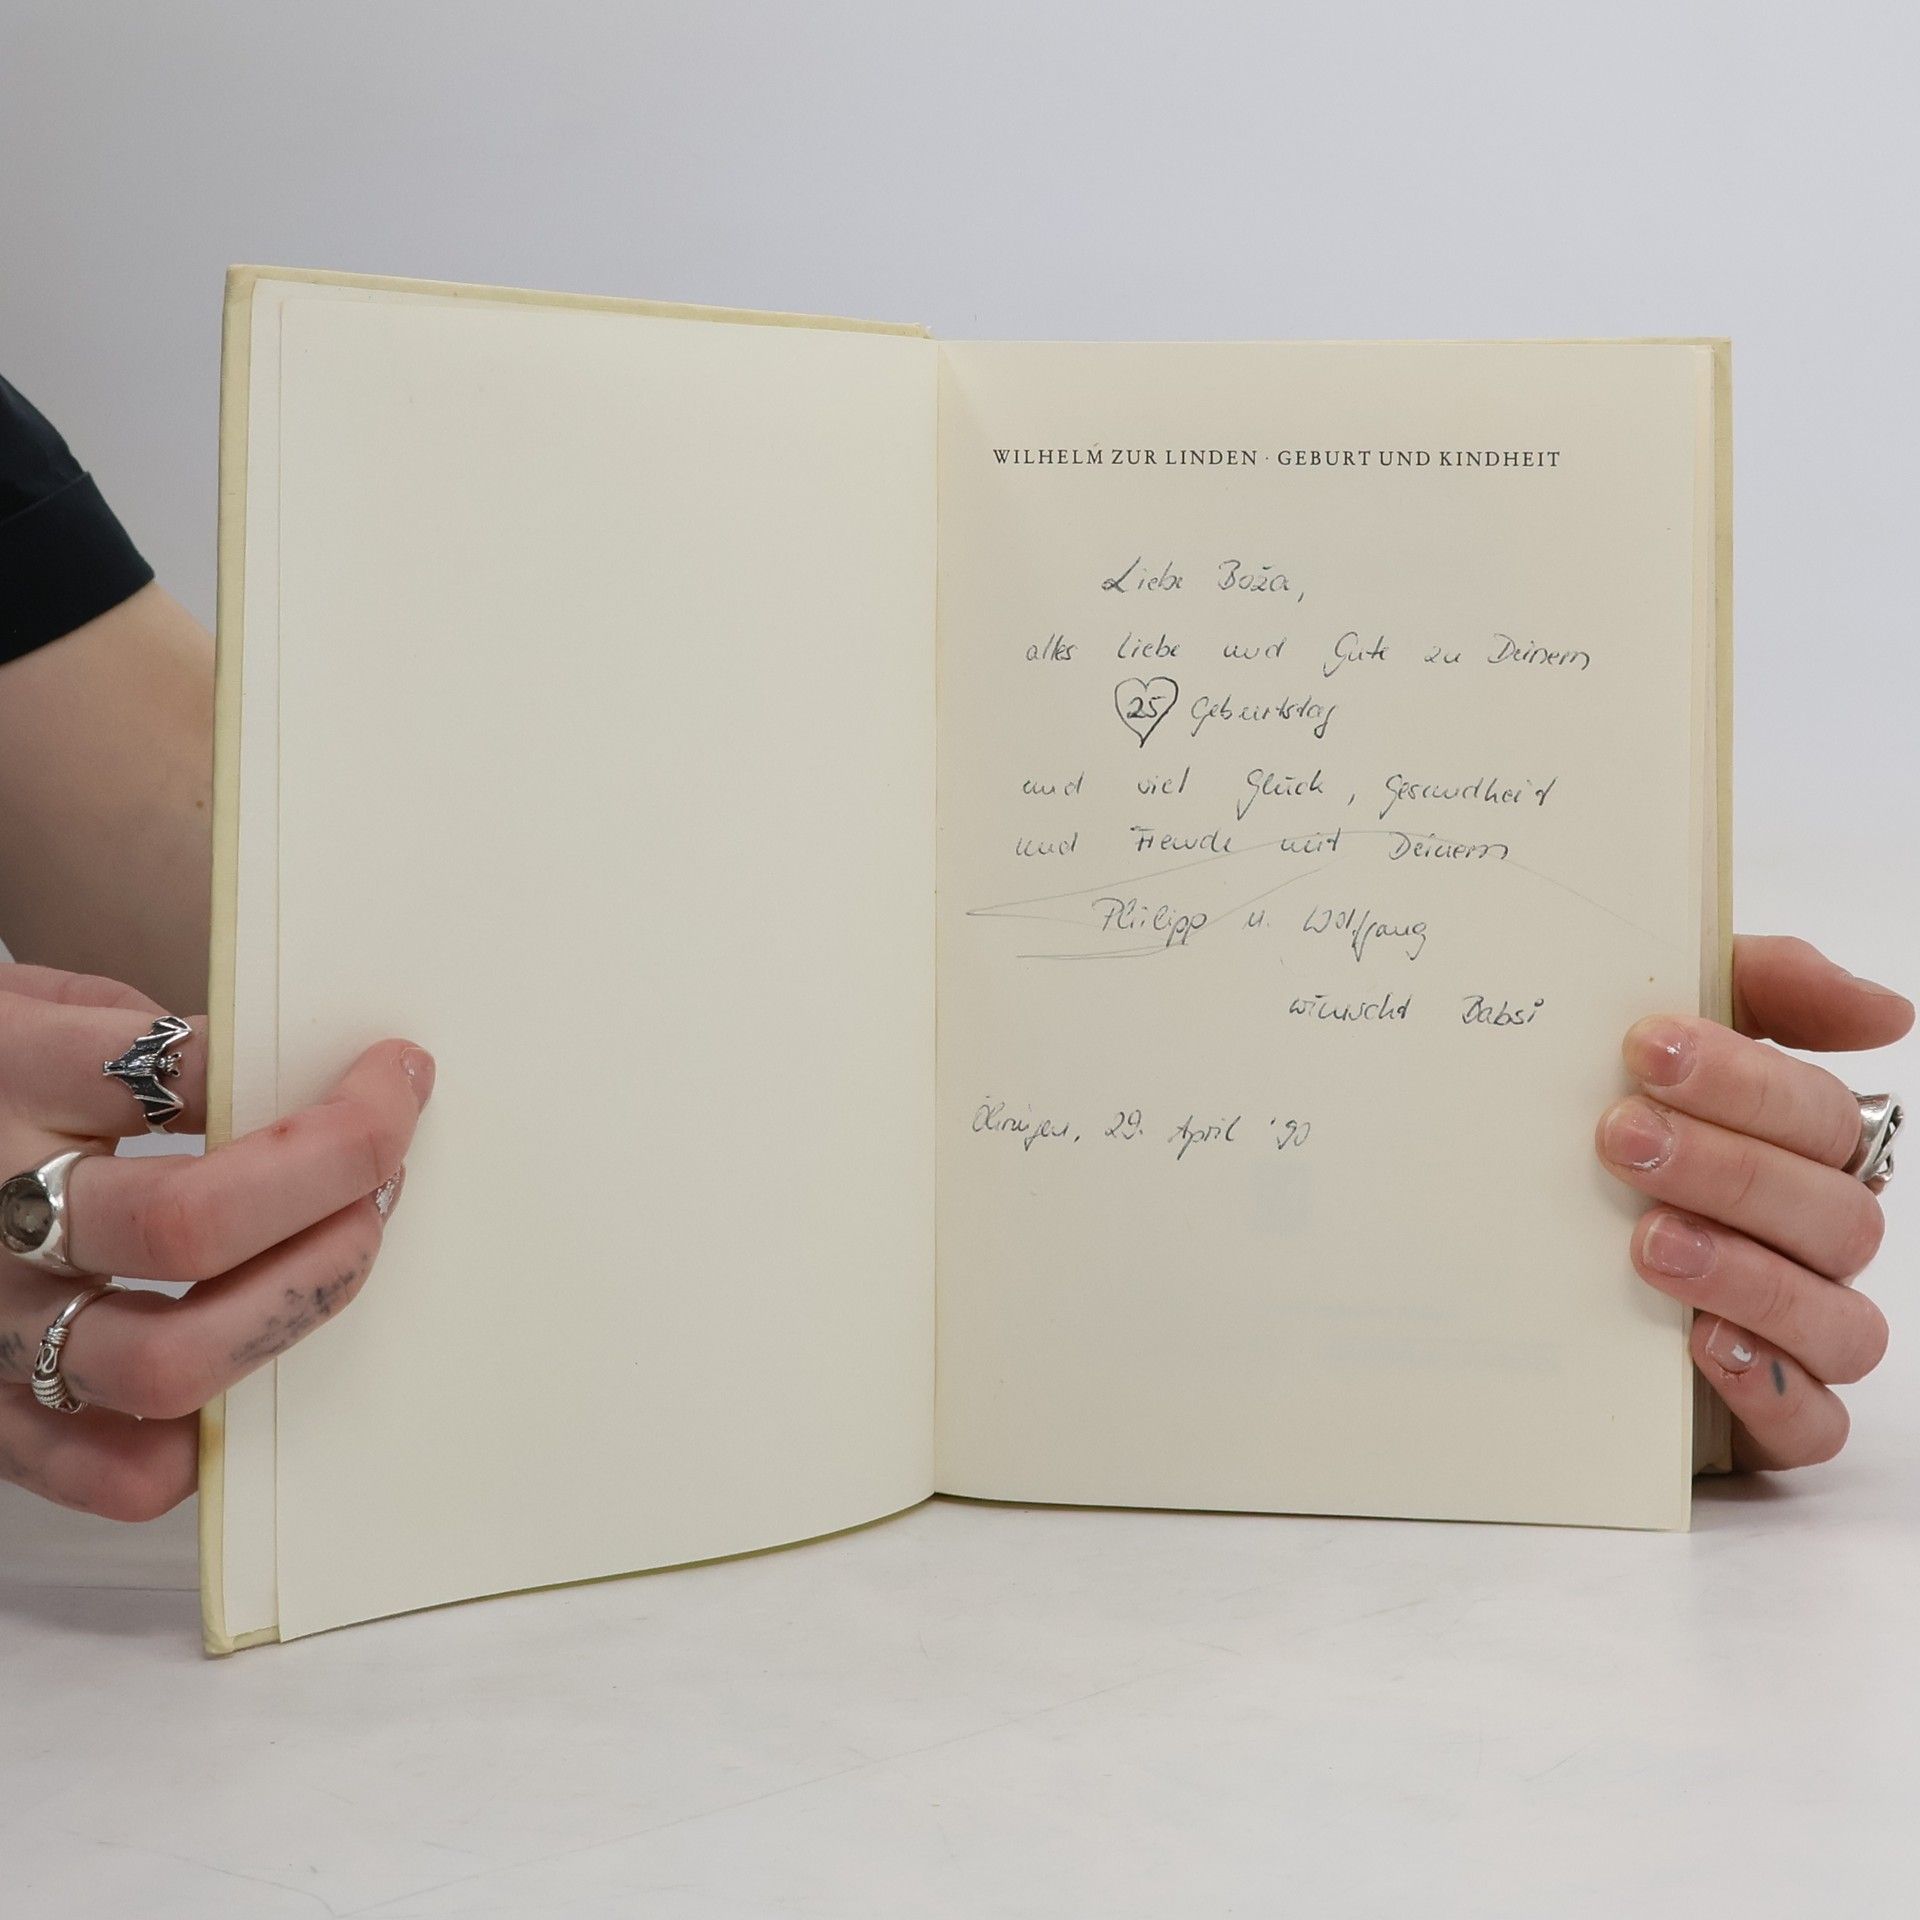 WILHELM ZUR LINDEN · GEBURT UND KINDHEIT
Liebe Boža,
alles Liebe und Gute zu Deinem
25 Geburtstag
und viel Glück, Gesundheit
und Freude mit Deinem
Philipp u. Wolfgang
wünscht Babsi
Öhringen, 29. April '90